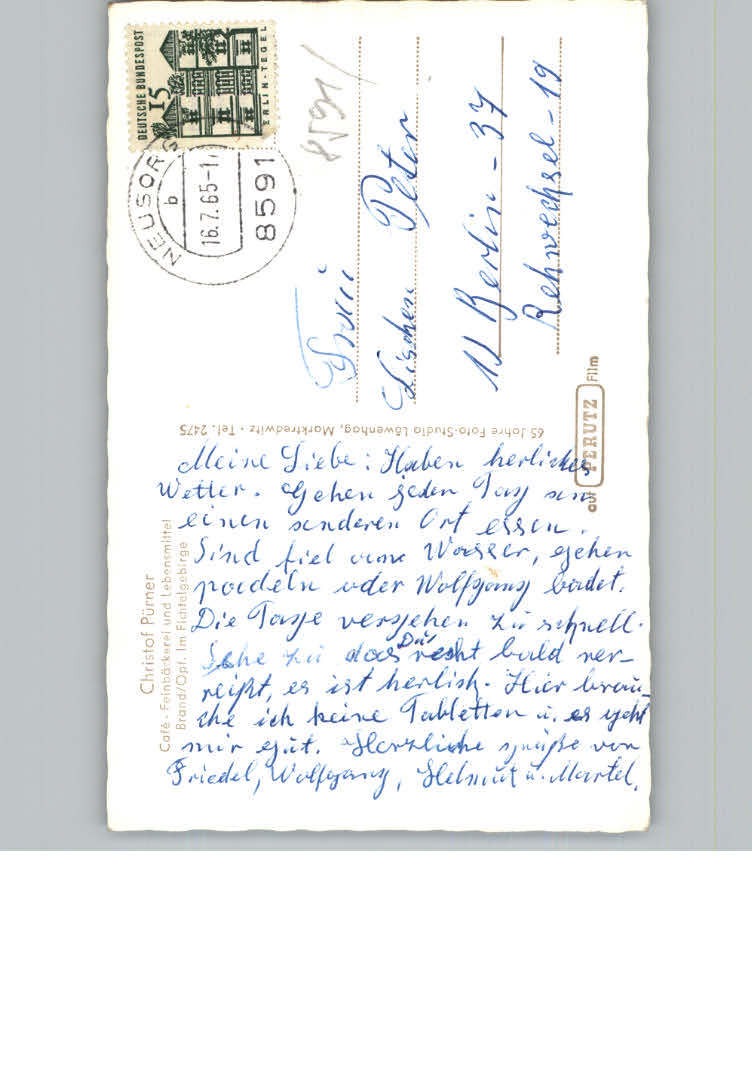 DEUTSCHE BUNDESPOST
15
BERLIN-TEGEL
NEUSORG
b
16.7.65-1
8591
8591/
Frau
Lischen Peter
1 Berlin-37
Rehwechsel-19
65 Jahre Foto-Studio Löwenhag, Marktredwitz · Tel. 2475
auf PERUTZ Film
Christof Pürner
Café · Feinbäckerei und Lebensmittel
Brand/Opf. im Fichtelgebirge
Meine Liebe: Haben herliches
Wetter. Gehen jeden Tag an
einen anderen Ort essen.
Sind fiel am Wasser, gehen
paddeln oder Wolfgang badet.
Die Tage vergehen zu schnell.
Sehe zu das Du recht bald ver-
reißt, es ist herlich. Hier brau-
che ich keine Tabletten u. es geht
mir gut. Herzliche grüße von
Friedel, Wolfgang, Helmut u. Martel.